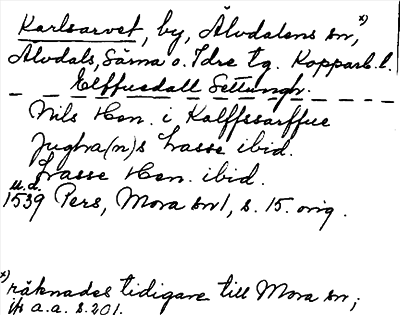 Karlsarvet, by, Älvdalens sn,x)
Älvdals, Särna o. Idre tg. Kopparb. l.
Elffuedall Settungh.
Nils Hen. i Kalffssarffue
Jughra(n)s Lasse ibid.
Lasse Hen. ibid.
u.d.
1539 Pers, Mora sn1, s. 15. orig.
x) räknades tidigare till Mora sn;
jfr a.a. s. 201.